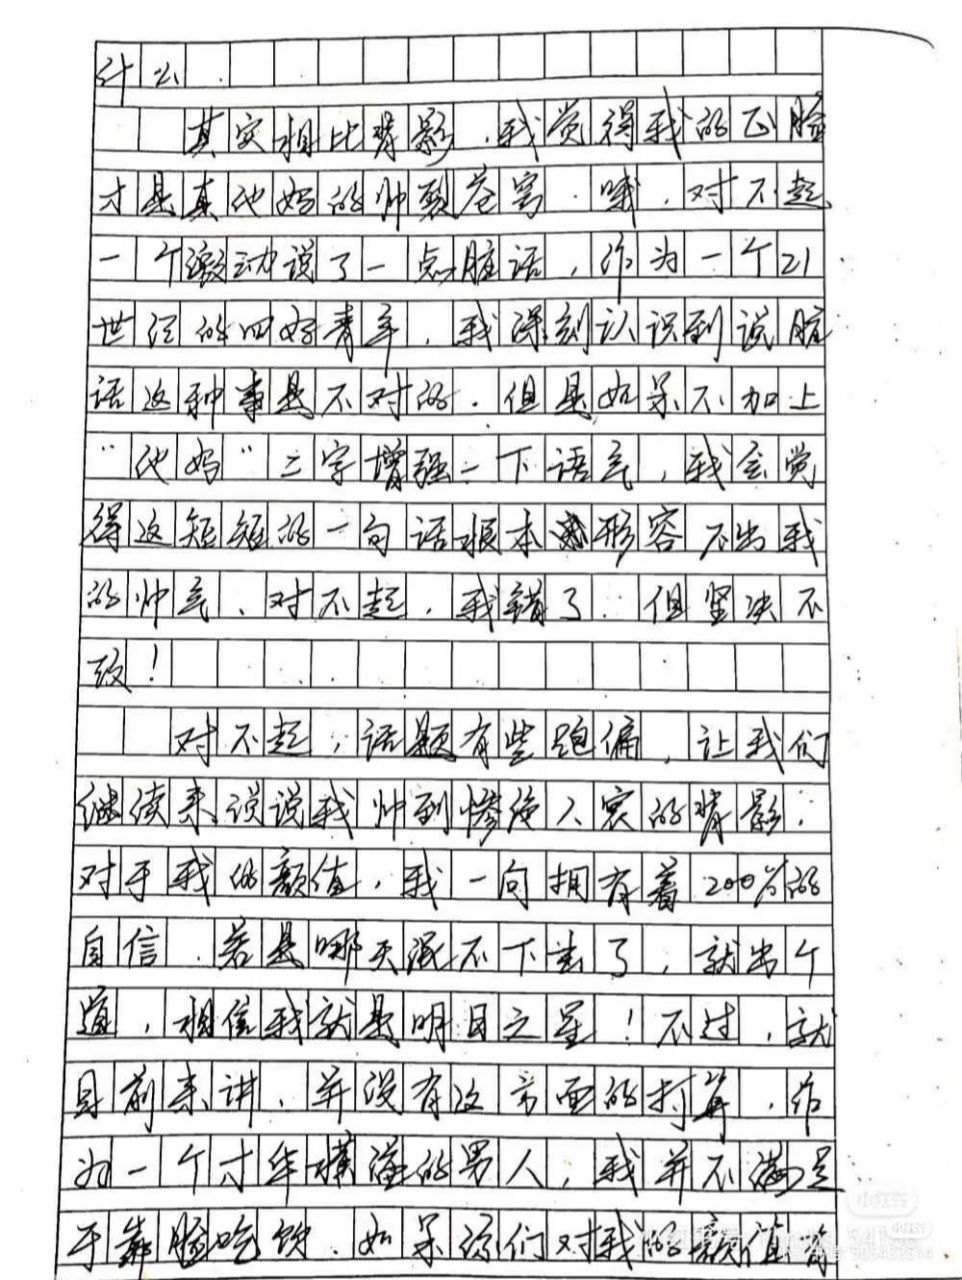 什么.
其实相比背影.我觉得我的正脸
才是真他妈的帅裂苍穹.哦,对不起
一个激动说了一点脏话,作为一个21
世纪的四好青年,我深刻认识到说脏
话这种事是不对的.但是如果不加上
“他妈”二字增强一下语气,我会觉
得这短短的一句话根本形容不出我
的帅气.对不起,我错了.但坚决不
改!
对不起,话题有些跑偏,让我们
继续来说说我帅到惨绝人寰的背影.
对于我的颜值,我一向拥有着200%的
自信.若是哪天混不下去了,就出个
道,相信我就是明日之星!不过,就
目前来讲,并没有这方面的打算.作
为一个才华横溢的男人,我并不满足
于靠脸吃饭.如果你们对我的颜值有
小红书